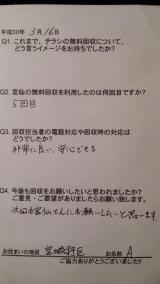 平成30年 3月16日
Q1. これまで、チラシの無料回収について、
どう言うイメージをお持ちでしたか?
Q2. 宮仙の無料回収を利用したのは何回目ですか?
5回目
Q3. 回収担当者の電話対応や回収時の対応は
どうでしたか?
非常に良い、安心できる
Q4. 今後も回収をお願いしたいと思われましたか?
ご意見・ご要望がありましたらお願い致します。
次回も宮仙さんにお願いしたいと思います。
お住まいの地区 宮城野区 お名前 A
ご協力ありがとうございました!!